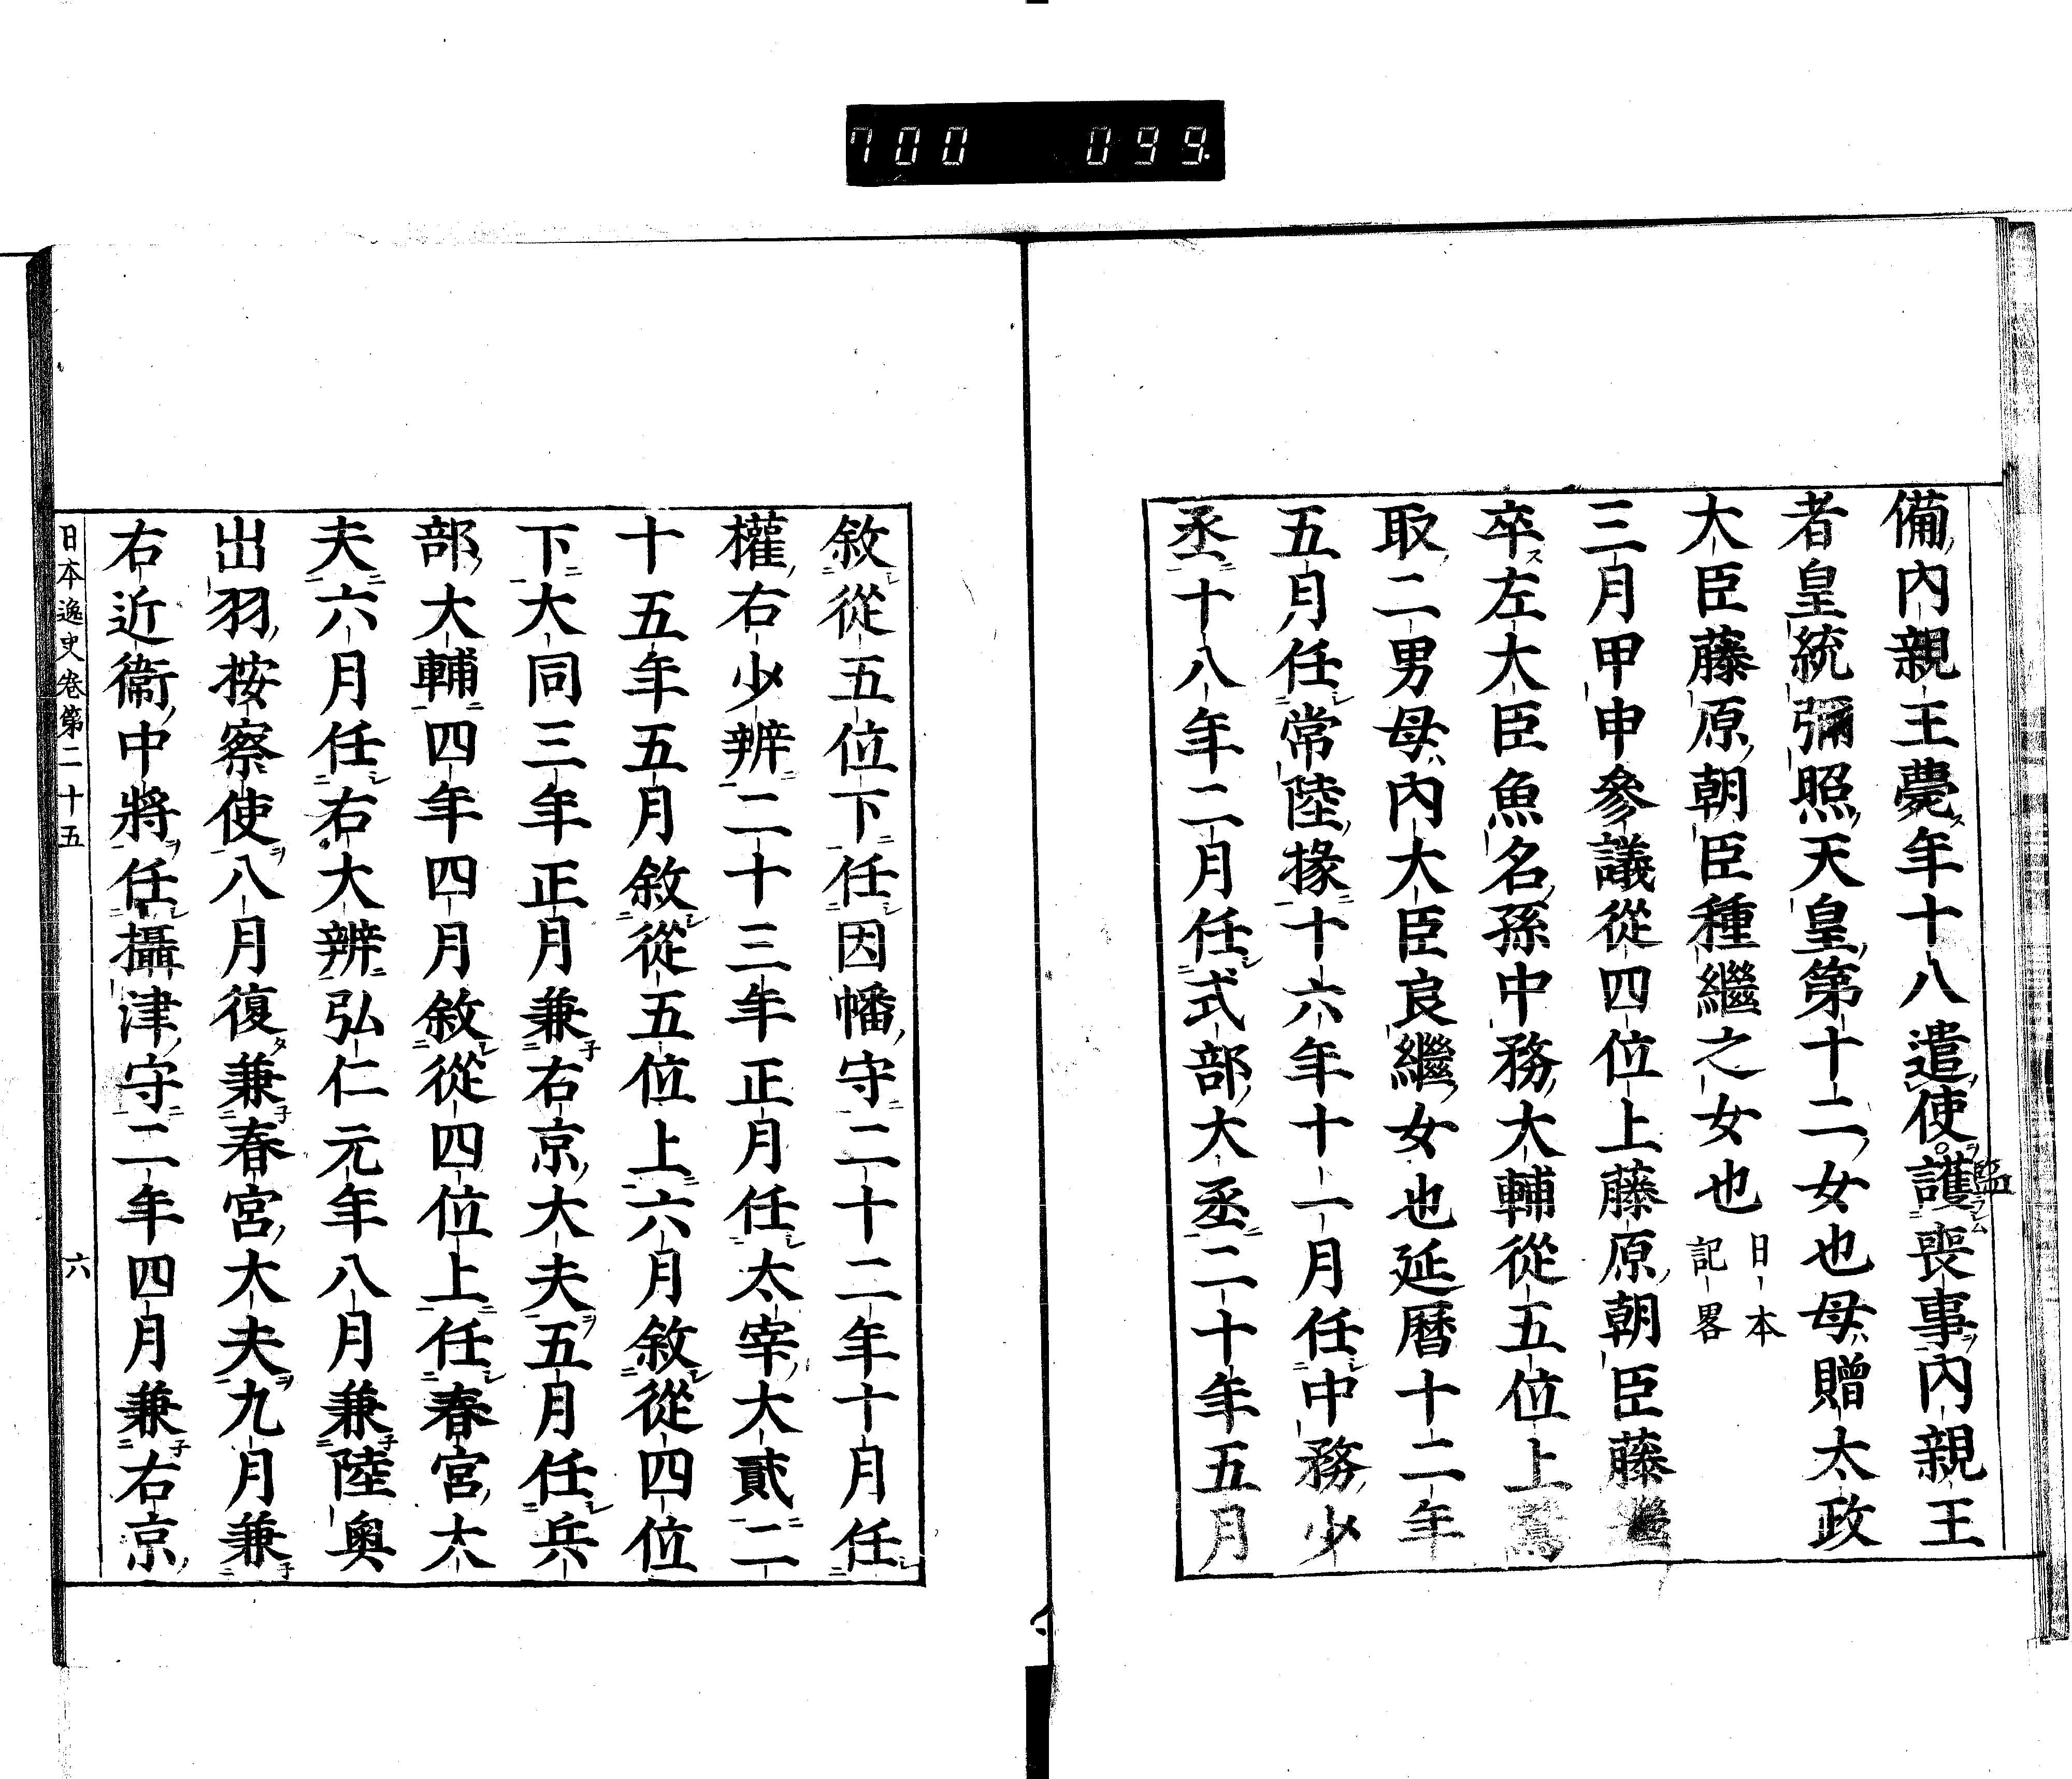 700 099.
備內親王薨ス年十八遣使ヲ監護ラム喪事ヲ內親王
者皇統彌照天皇第十二女也母贈太政
大臣藤原朝臣種繼之女也日本記畧
三月甲申參議從四位上藤原朝臣藤
卒ス左大臣魚名孫中務大輔從五位上鷲
取二男母內大臣良繼女也延曆十二年
五月任常陸掾十六年十一月任中務少
丞十八年二月任式部大丞二十年五月
敘從五位下任因幡守二十二年十月任
權右少辨二十三年正月任太宰大貳二
十五年五月敘從五位上六月敘從四位
下大同三年正月兼右京大夫五月任兵
部大輔四年四月敘從四位上任春宮大
夫六月任右大辨弘仁元年八月兼陸奧
出羽按察使八月復兼春宮大夫九月兼
右近衞中將任攝津守二年四月兼右京
日本逸史卷第二十五 六